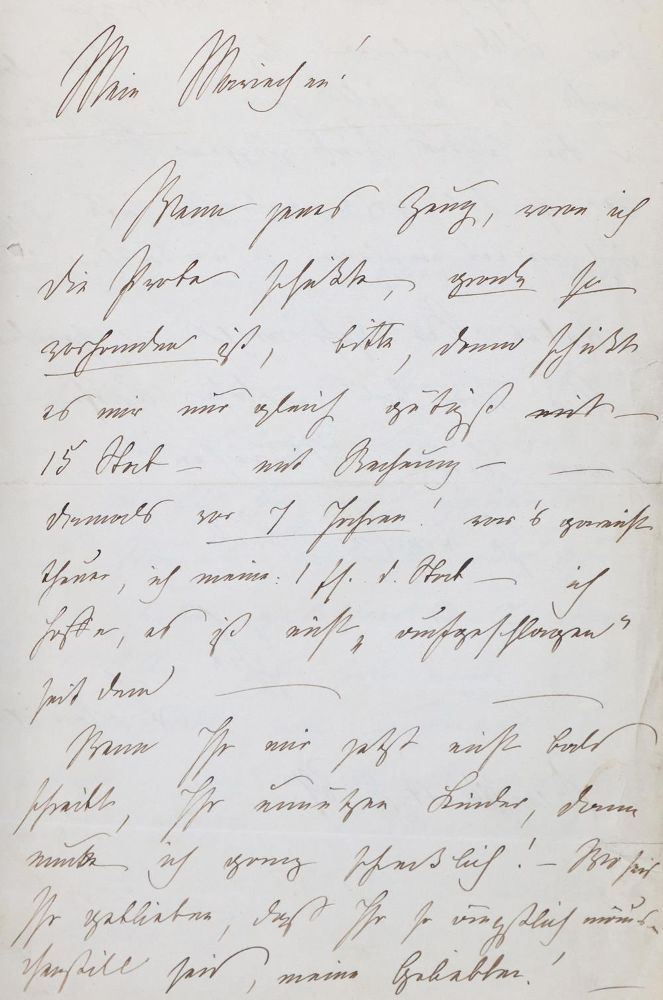 Mein Mariechen!
Wenn jenes Zeug, wovon ich
die Probe schickte, grade so
vorhanden ist, bitte, dann schickt
es mir nur gleich gütigst mit –
15 Stab – mit Rechnung – –
damals vor 7 Jahren! war's garnicht
theuer, ich meine: 1 fl. d. Stab – ich
hoffe, es ist nicht „aufgeschlagen"
seit dem — —
Wenn Ihr mir jetzt nicht bald
schreibt, Ihr unnützen Kinder, dann
ich ganz schrecklich! – Wo seid
Ihr geblieben, daß Ihr so ängstlich mäus-
chenstill seid, meine Geliebten! —